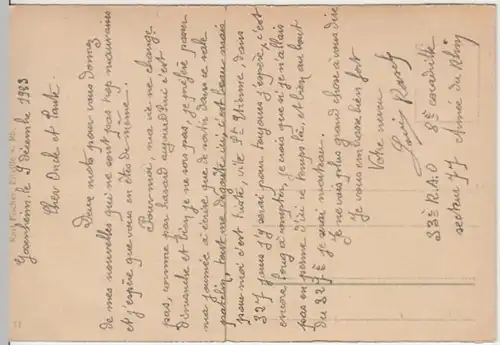 Gonsenheim le 9 décembre 1923
Cher Oncle et Tante.
Deux mots pour vous donnez
de mes nouvelles qui ne sont pas trop mauvaises
et j'espère que vous en êtes de même.
Pour moi, ma vie ne change
pas, comme par hasard aujourd'hui c'est
dimanche et bien je ne sors pas, je préfère passer
ma journée à écrire que de sortir dans ce sale
patelin, tout me dégoute ici, c'est beau mais
pour moi c'est triste, vite St Etienne, dans
327 jours j'y serai pour toujours j'espère, c'est
encore long à compter, je crois que si je n'allais
pas en perme d'ici ce temps là, et bien au bout
du 327è je serai marteau.
Je ne vois plus grand chose à vous dire
Je vous embrasse bien fort
Votre neveu
Louis
33è R.A.D 8è
secteur 77 Armée du Rhin